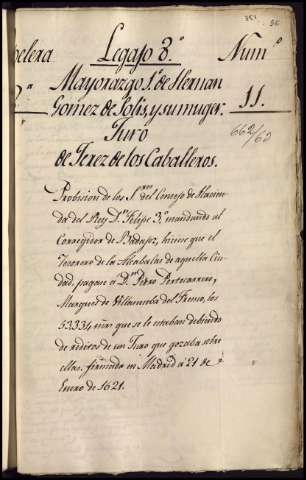 351. 56
pelera Legajo 8.º Num.º
Mayorazgo 1.º de Hernan
Gomez de Solis, y su muger. 11.
Juro 662/60
de Xerez de los Caballeros.
Provision de los S.res del Consejo de Hacien
da del Rey D.n Felipe 3.º mandando al
Corregidor de Badajoz, hiciese que el
Tesorero de las Alcabalas de aquella Ciu
dad, pagase a D.n Pedro Portocarrero,
Marques de Villanueba del Fresno, los
53334, mrs. que se le estaban debiendo
de reditos de un Juro que gozaba sobre
ellas, firmada en Madrid á 21 de
Enero de 1621.